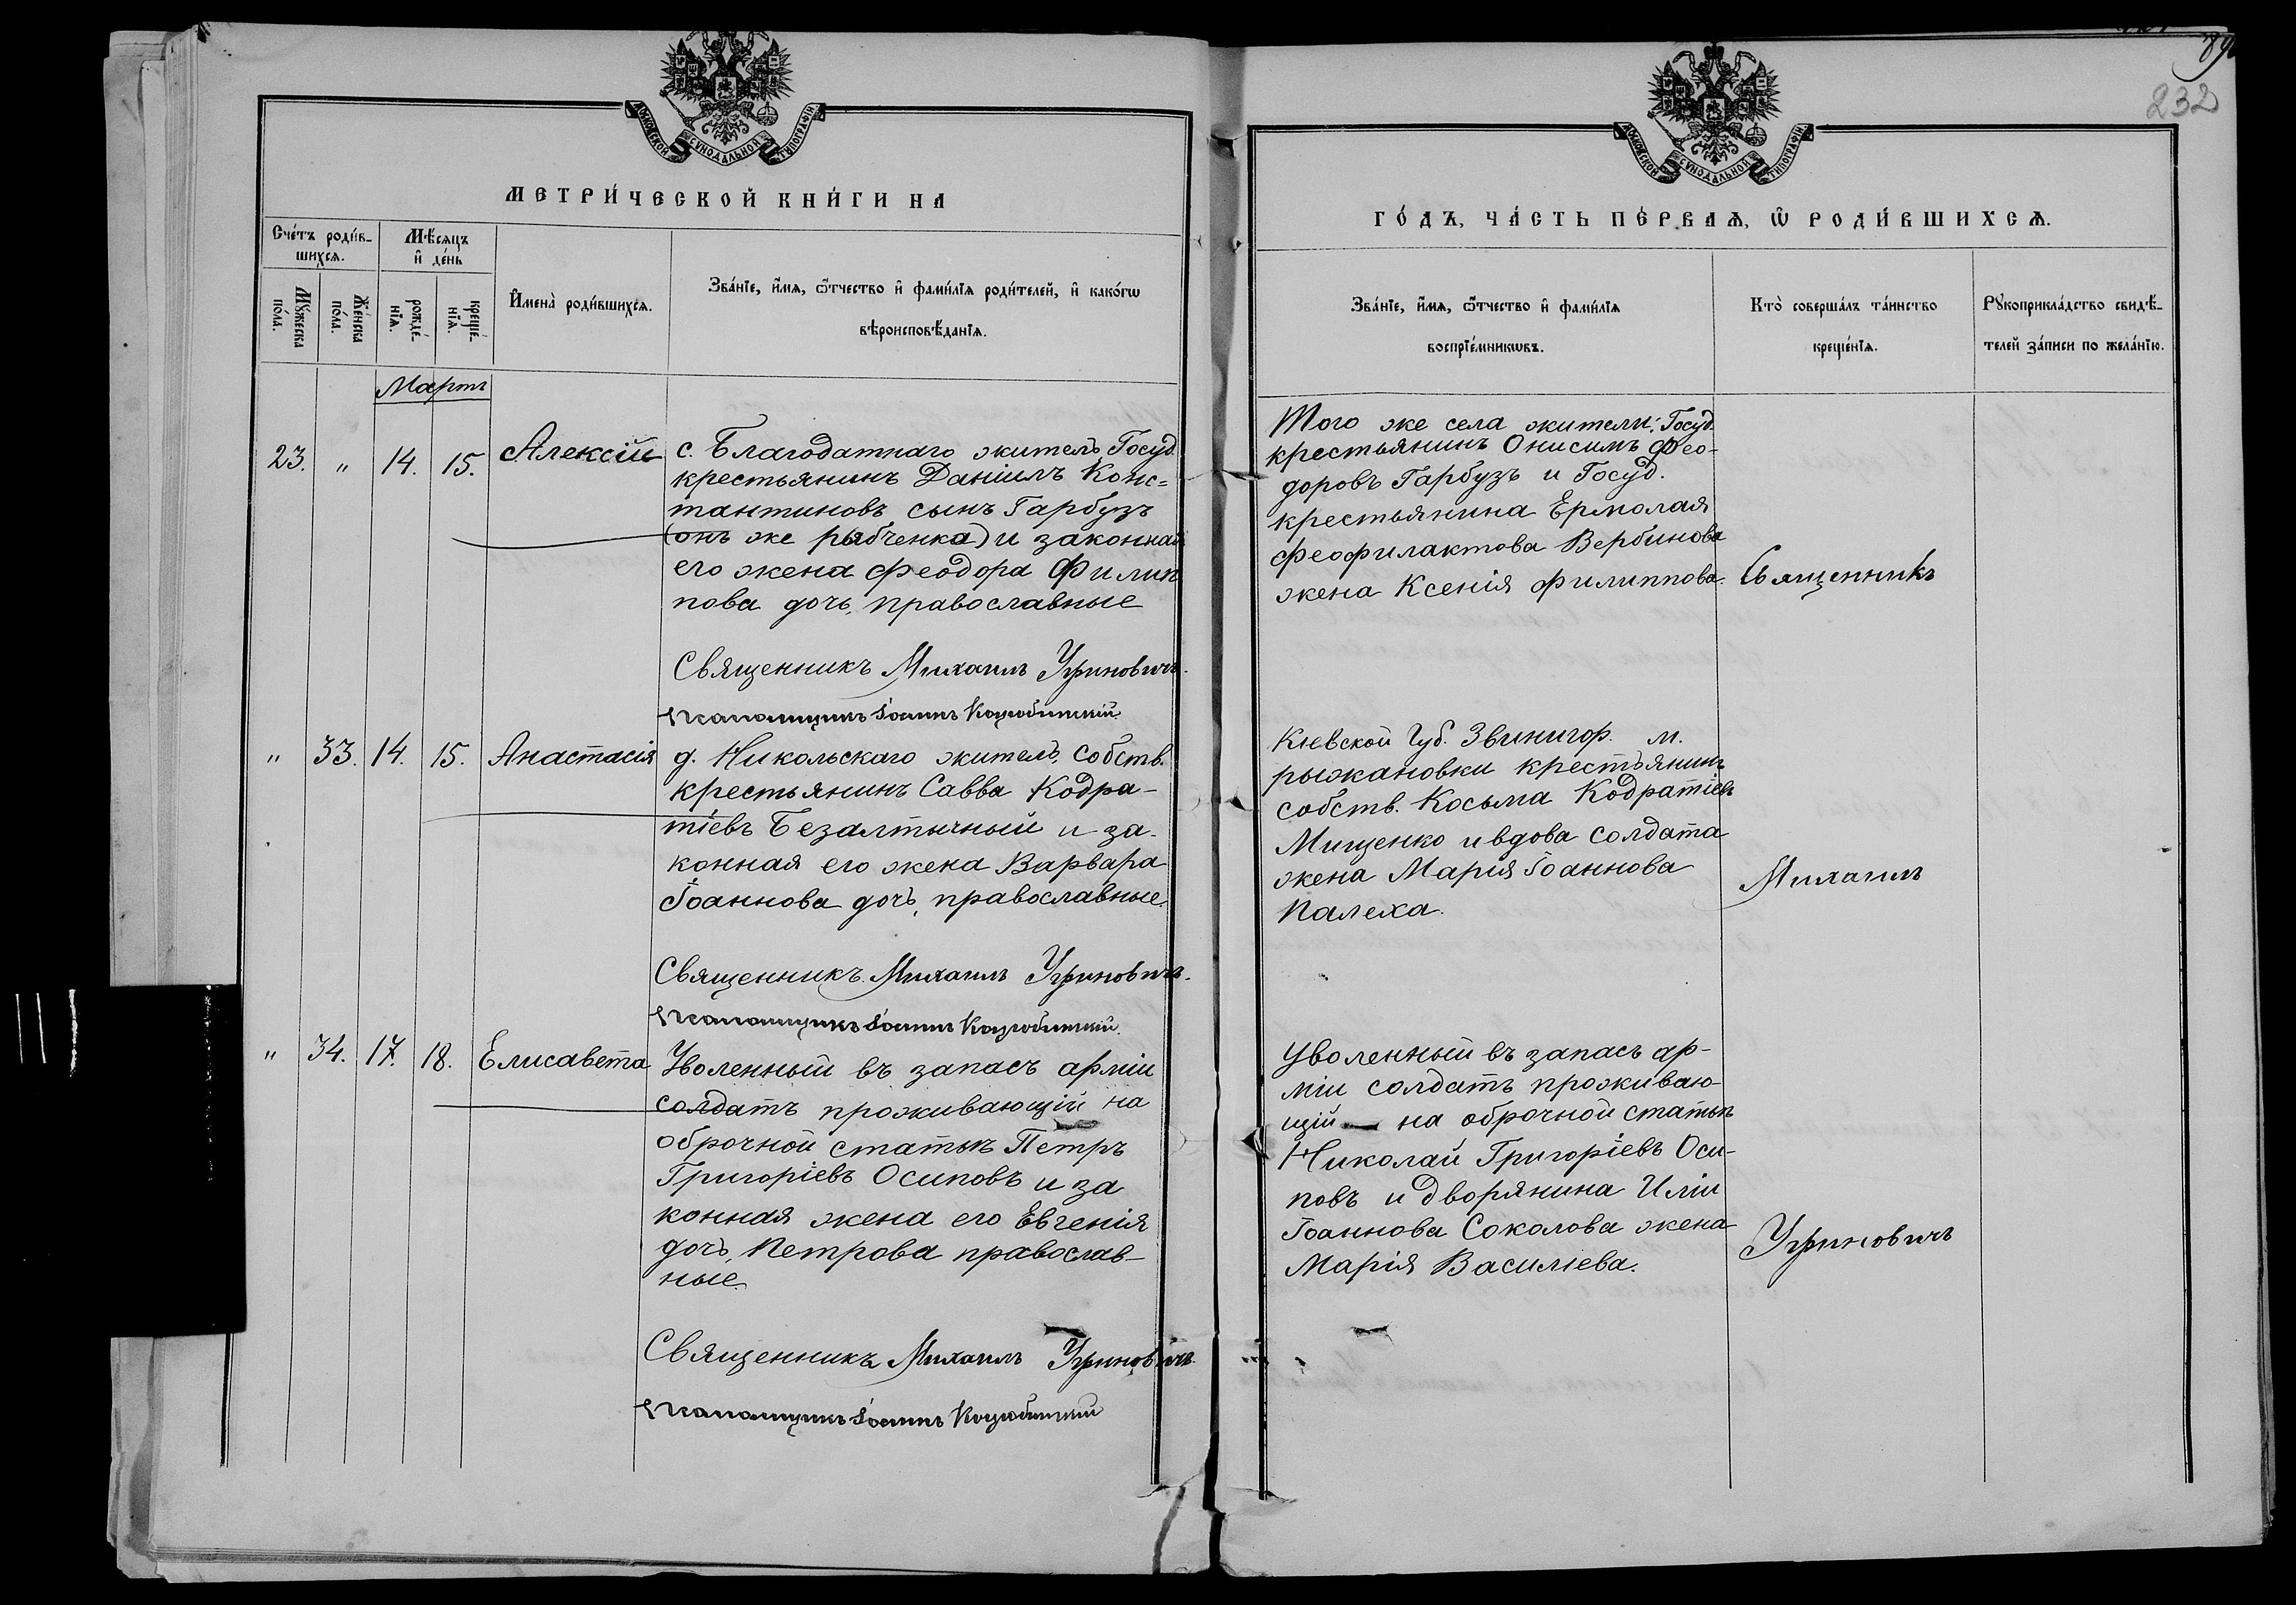 232
МОСКОВСКОЙ СѴНОДАЛЬНОЙ ТИПОГРАФІИ.
МОСКОВСКОЙ СѴНОДАЛЬНОЙ ТИПОГРАФІИ.
МЕТРИ́ЧЕСКОЙ КНИ́ГИ НА
Сче́тъ роди́в-
шихсѧ.
Мѣ́сѧцъ
и҆ де́нь
Мꙋ́жеска
по́ла.
Же́нска
по́ла.
рожде́-
нїѧ.
креще́-
нїѧ.
И҆мена̀ роди́вшихсѧ.
Зва́нїе, и҆́мѧ, ѻ҆́тчество и҆ фами́лїѧ роди́телей, и҆ како́гѡ
вѣроисповѣ́данїѧ.
Мартъ
23. " 14. 15. Алексій
с. Благодатнаго житель, Госуд.
крестьянинъ Даніилъ Конс=
тантиновъ сынъ Гарбузъ
(онъ же рябченка) и законная
его жена Феодора Филип
пова дочь, православные
Священникъ Михаилъ Угриновичъ.
Псаломщикъ Іоаннъ Коцюбинскій.
" 33. 14. 15. Анастасія
д. Никольскаго житель, собств.
крестьянинъ Савва Кодра-
тіевъ Безалтычный и за-
конная его жена Варвара
Іоаннова дочь, православные.
Священникъ Михаилъ Угриновичъ.
Псаломщикъ Іоаннъ Коцюбинскій.
" 34. 17. 18. Елисавета
Уволенный въ запасъ арміи
солдатъ проживающій на
оброчной статьѣ Петръ
Григоріевъ Осиповъ и за
конная жена его Евгенія
дочь, Петрова православ-
ные.
Священникъ Михаилъ Угриновичъ.
Псаломщикъ Іоаннъ Коцюбинскій
ГО́ДЪ, ЧА́СТЬ ПЕ́РВАѦ, Ѽ РОДИ́ВШИХСѦ.
Зва́нїе, и҆́мѧ, ѻ҆́тчество и҆ фами́лїѧ
воспрїе́мникѡвъ.
Кто̀ соверша́лъ та́инство
креще́нїѧ.
Рꙋкоприкла́дство свидѣ́-
телей за́писи по жела́нїю.
Того же села жители: Госуд.
крестьянинъ Онисимъ Фео-
доровъ Гарбузъ и Госуд.
крестьянина Ермолая
Феофилактова Вербинова
жена Ксенія Филиппова.
Священникъ
Кіевской Губ. Звинигор. м.
рыжановки крестьянинъ
собств. Косьма Кодратіевъ
Мищенко и вдова солдата
жена Марія Іоаннова
Палеха.
Михаилъ
Уволенный въ запасъ ар-
міи солдатъ проживаю-
щій на оброчной статьѣ
Николай Григоріевъ Оси-
повъ и дворянина Иліи
Іоаннова Соколова жена
Марія Василіева.
Угриновичъ